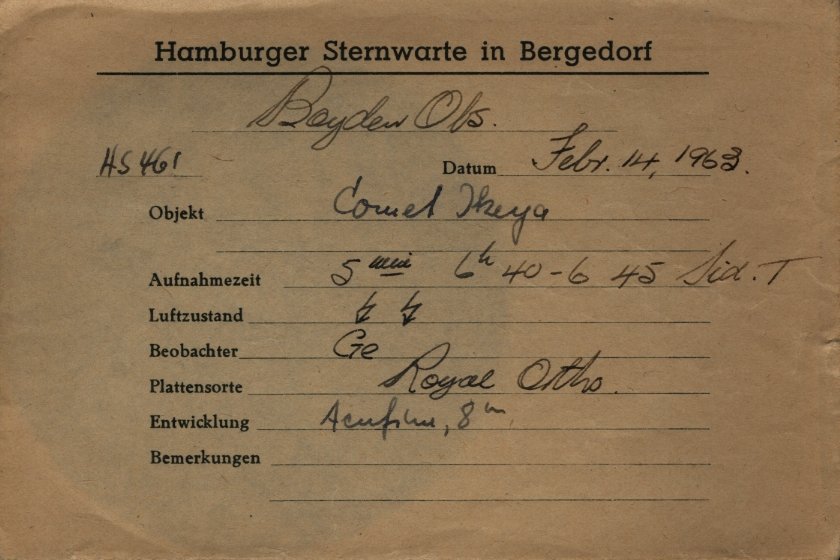 Hamburger Sternwarte in Bergedorf
Boyden Obs.
HS 461 Datum Febr. 14, 1963.
Objekt Comet Ikeya
Aufnahmezeit 5 min 6h 40 - 6 45 Sid. T
Luftzustand
Beobachter Ge
Plattensorte Royal Ortho.
Entwicklung Acufine, 8m
Bemerkungen